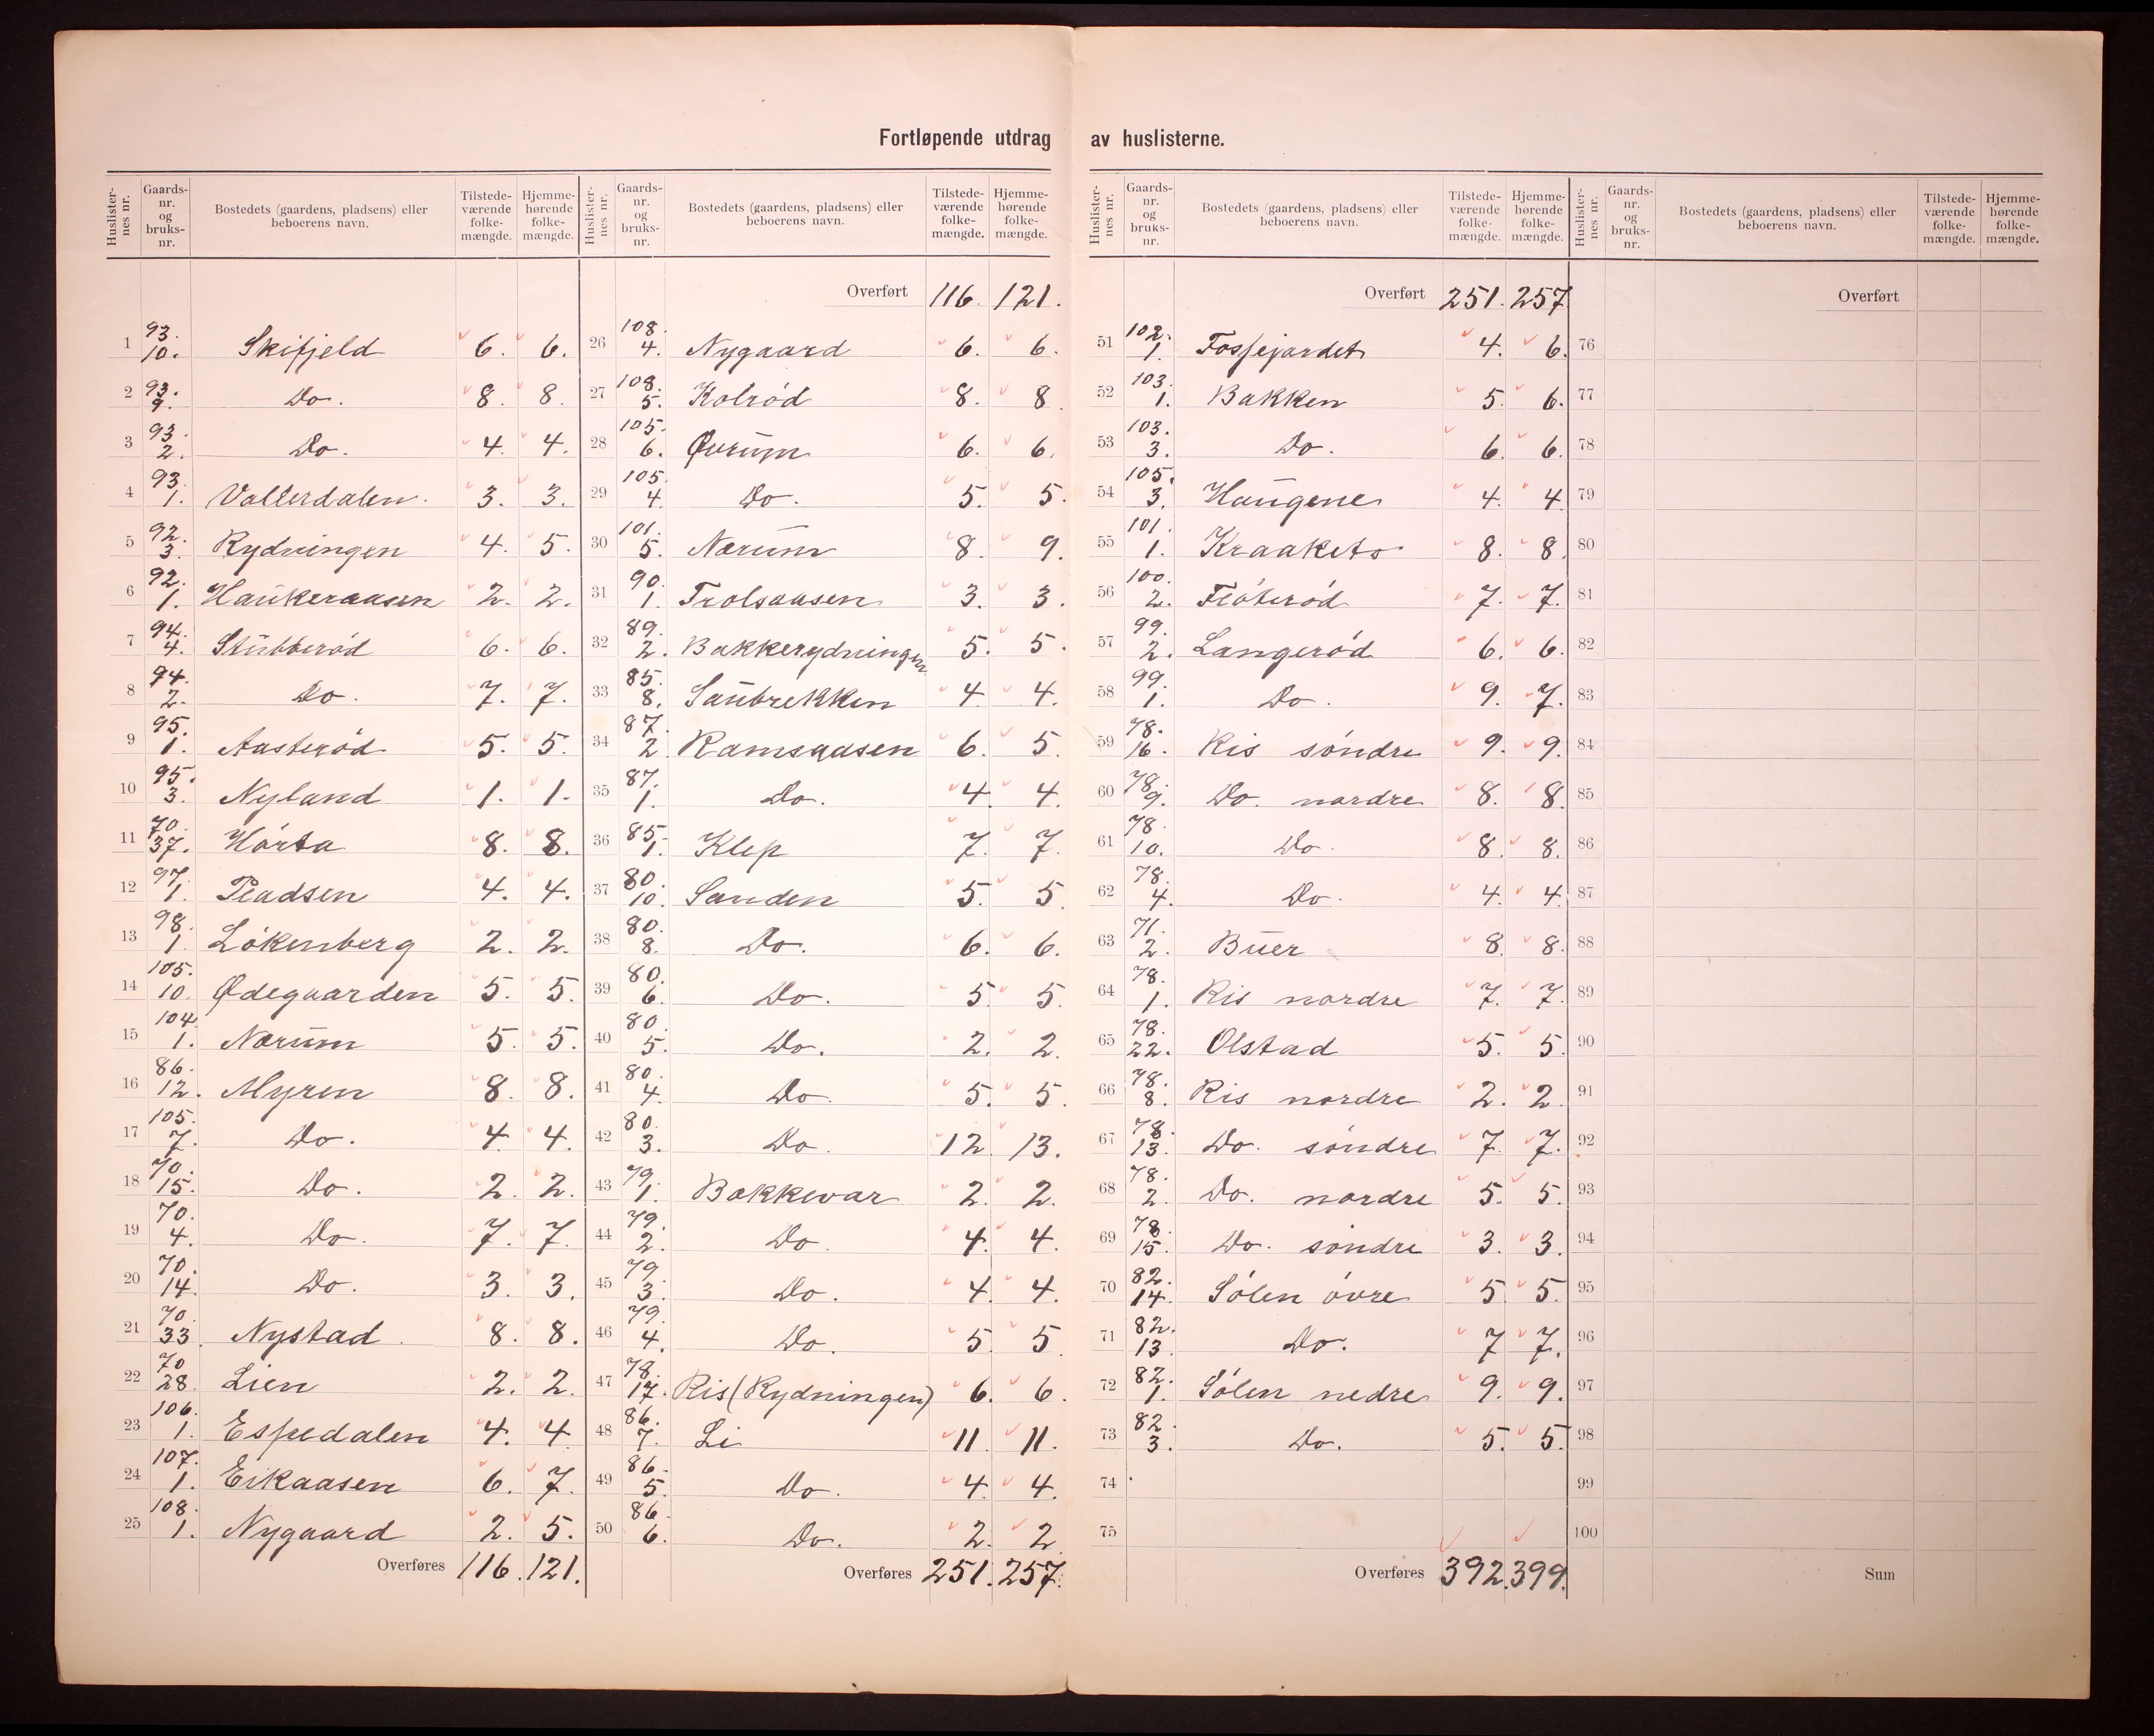 Fortløpende utdrag av huslisterne.
Huslister-nes nr. Gaards-nr. og bruks-nr. Bostedets (gaardens, pladsens) eller beboerens navn. Tilstede-værende folke-mængde. Hjemme-hørende folke-mængde.
1 93. 10. Skifjeld 6. 6.
2 93. 9. Do. 8. 8.
3 93. 2. Do. 4. 4.
4 93. 1. Valterdalen. 3. 3.
5 92. 3. Rydningen 4. 5.
6 92. 1. Haukeraasen 2. 2.
7 94. 4. Stubberød 6. 6.
8 94. 2. Do. 7. 7.
9 95. 1. Aasterød 5. 5.
10 95. 3. Nyland 1. 1.
11 70. 37. Hørta 8. 8.
12 97. 1. Pladsen 4. 4.
13 98. 1. Løkenberg 2. 2.
14 105. 10. Ødegaarden 5. 5.
15 104. 1. Nærum 5. 5.
16 86. 12. Myren 8. 8.
17 105. 7. Do. 4. 4.
18 70. 15. Do. 2. 2.
19 70. 4. Do. 7. 7.
20 70. 14. Do. 3. 3.
21 70. 33. Nystad 8. 8.
22 70 28. Lien 2. 2.
23 106. 1. Espedalen 4. 4
24 107. 1. Eikaasen 6. 7.
25 108. 1. Nygaard 2. 5.
Overføres 116. 121.
Huslister-nes nr. Gaards-nr. og bruks-nr. Bostedets (gaardens, pladsens) eller beboerens navn. Tilstede-værende folke-mængde. Hjemme-hørende folke-mængde.
Overført 116. 121.
26 108. 4. Nygaard 6. 6.
27 108. 5. Kolrød 8. 8.
28 105. 6. Øverum 6. 6.
29 105 4. Do. 5. 5.
30 101. 5. Nærum 8. 9.
31 90. 1. Trolsaasen 3. 3.
32 89. 2. Bakkerydningen 5. 5.
33 85. 8. Saubrekken 4. 4.
34 87. 2 Ramsaasen 6. 5.
35 87. 1. Do. 4. 4.
36 85. 1. Klep 7. 7.
37 80. 10. Sanden 5. 5.
38 80. 8. Do. 6. 6.
39 80. 6. Do. 5 5.
40 80. 5. Do. 2. 2.
41 80. 4. Do. 5. 5.
42 80. 3. Do. 12. 13.
43 79. 1. Bakkevar 2. 2.
44 79. 2. Do. 4. 4.
45 79. 3. Do. 4. 4.
46 79. 4. Do. 5 5
47 78. 17. Ris (Rydningen) 6. 6.
48 86. 7. Li 11. 11.
49 86. 5. Do. 4. 4.
50 86 6. Do. 2. 2
Overføres 251. 257.
Huslister-nes nr. Gaards-nr. og bruks-nr. Bostedets (gaardens, pladsens) eller beboerens navn. Tilstede-værende folke-mængde. Hjemme-hørende folke-mængde.
Overført 251. 257
51 102. 1. Fossejordet 4. 6.
52 103. 1. Bakken 5. 6.
53 103. 3. Do. 6. 6.
54 105. 3. Haugene 4. 4
55 101. 1. 8. 8.
56 100. 2. Fløterød 7. 7.
57 99. 2. Langerød 6. 6.
58 99. 1. Do. 9. 7.
59 78. 16. Ris søndre 9. 9.
60 78. 9. Do. nordre 8. 8.
61 78. 10. Do. 8. 8.
62 78. 4. Do. 4. 4.
63 71. 2. Buer 8. 8.
64 78. 1. Ris nordre 7. 7.
65 78. 22. Olstad 5. 5.
66 78. 8. Ris nordre 2. 2.
67 78. 13. Do. søndre 7. 7.
68 78. 2. Do. nordre 5. 5.
69 78. 15. Do. søndre 3. 3.
70 82. 14. Sølen øvre 5. 5.
71 82. 13. Do. 7 7.
72 82. 1. Sølen nedre 9. 9.
73 82. 3. Do. 5. 5.
74
75
Overføres 392. 399.
Huslister-nes nr. Gaards-nr. og bruks-nr. Bostedets (gaardens, pladsens) eller beboerens navn. Tilstede-værende folke-mængde. Hjemme-hørende folke-mængde.
Overført
76
77
78
79
80
81
82
83
84
85
86
87
88
89
90
91
92
93
94
95
96
97
98
99
100
Sum